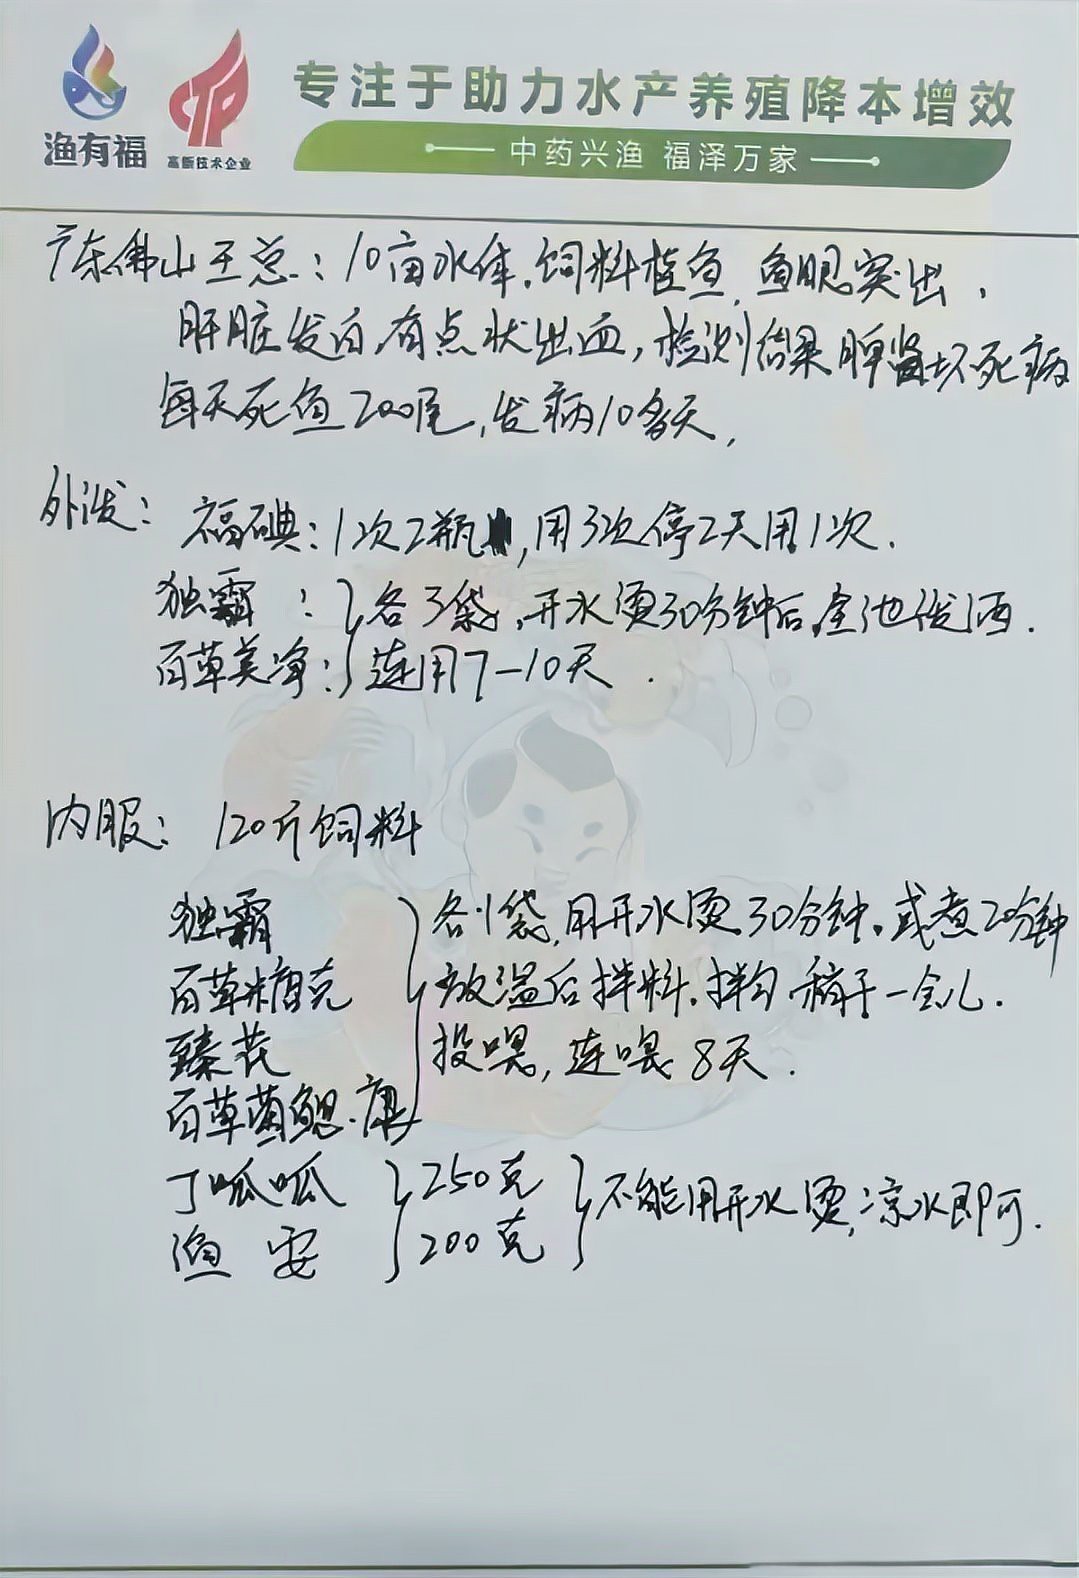 专注于助力水产养殖降本增效
渔有福
高新技术企业
中药兴渔 福泽万家
广东佛山王总：10亩水体，饲料桂鱼，鱼眼突出，
肝脏发白，有点状出血，检测结果脾肾坏死病
每天死鱼200尾，发病10多天，
外泼： 福碘：1次2瓶，用3次停2天用1次.
独霸 ： 各3袋，开水烫30分钟后，全池泼洒.
百草美净： 连用7-10天.
内服： 120斤饲料
独霸 各1袋，用开水烫30分钟，或煮20分钟
百草瘟克 放温后拌料，拌匀稍干一会儿.
臻花 投喂，连喂8天.
百草菌鳃康
丁呱呱 250克 不能用开水烫，凉水即可.
渔安 200克